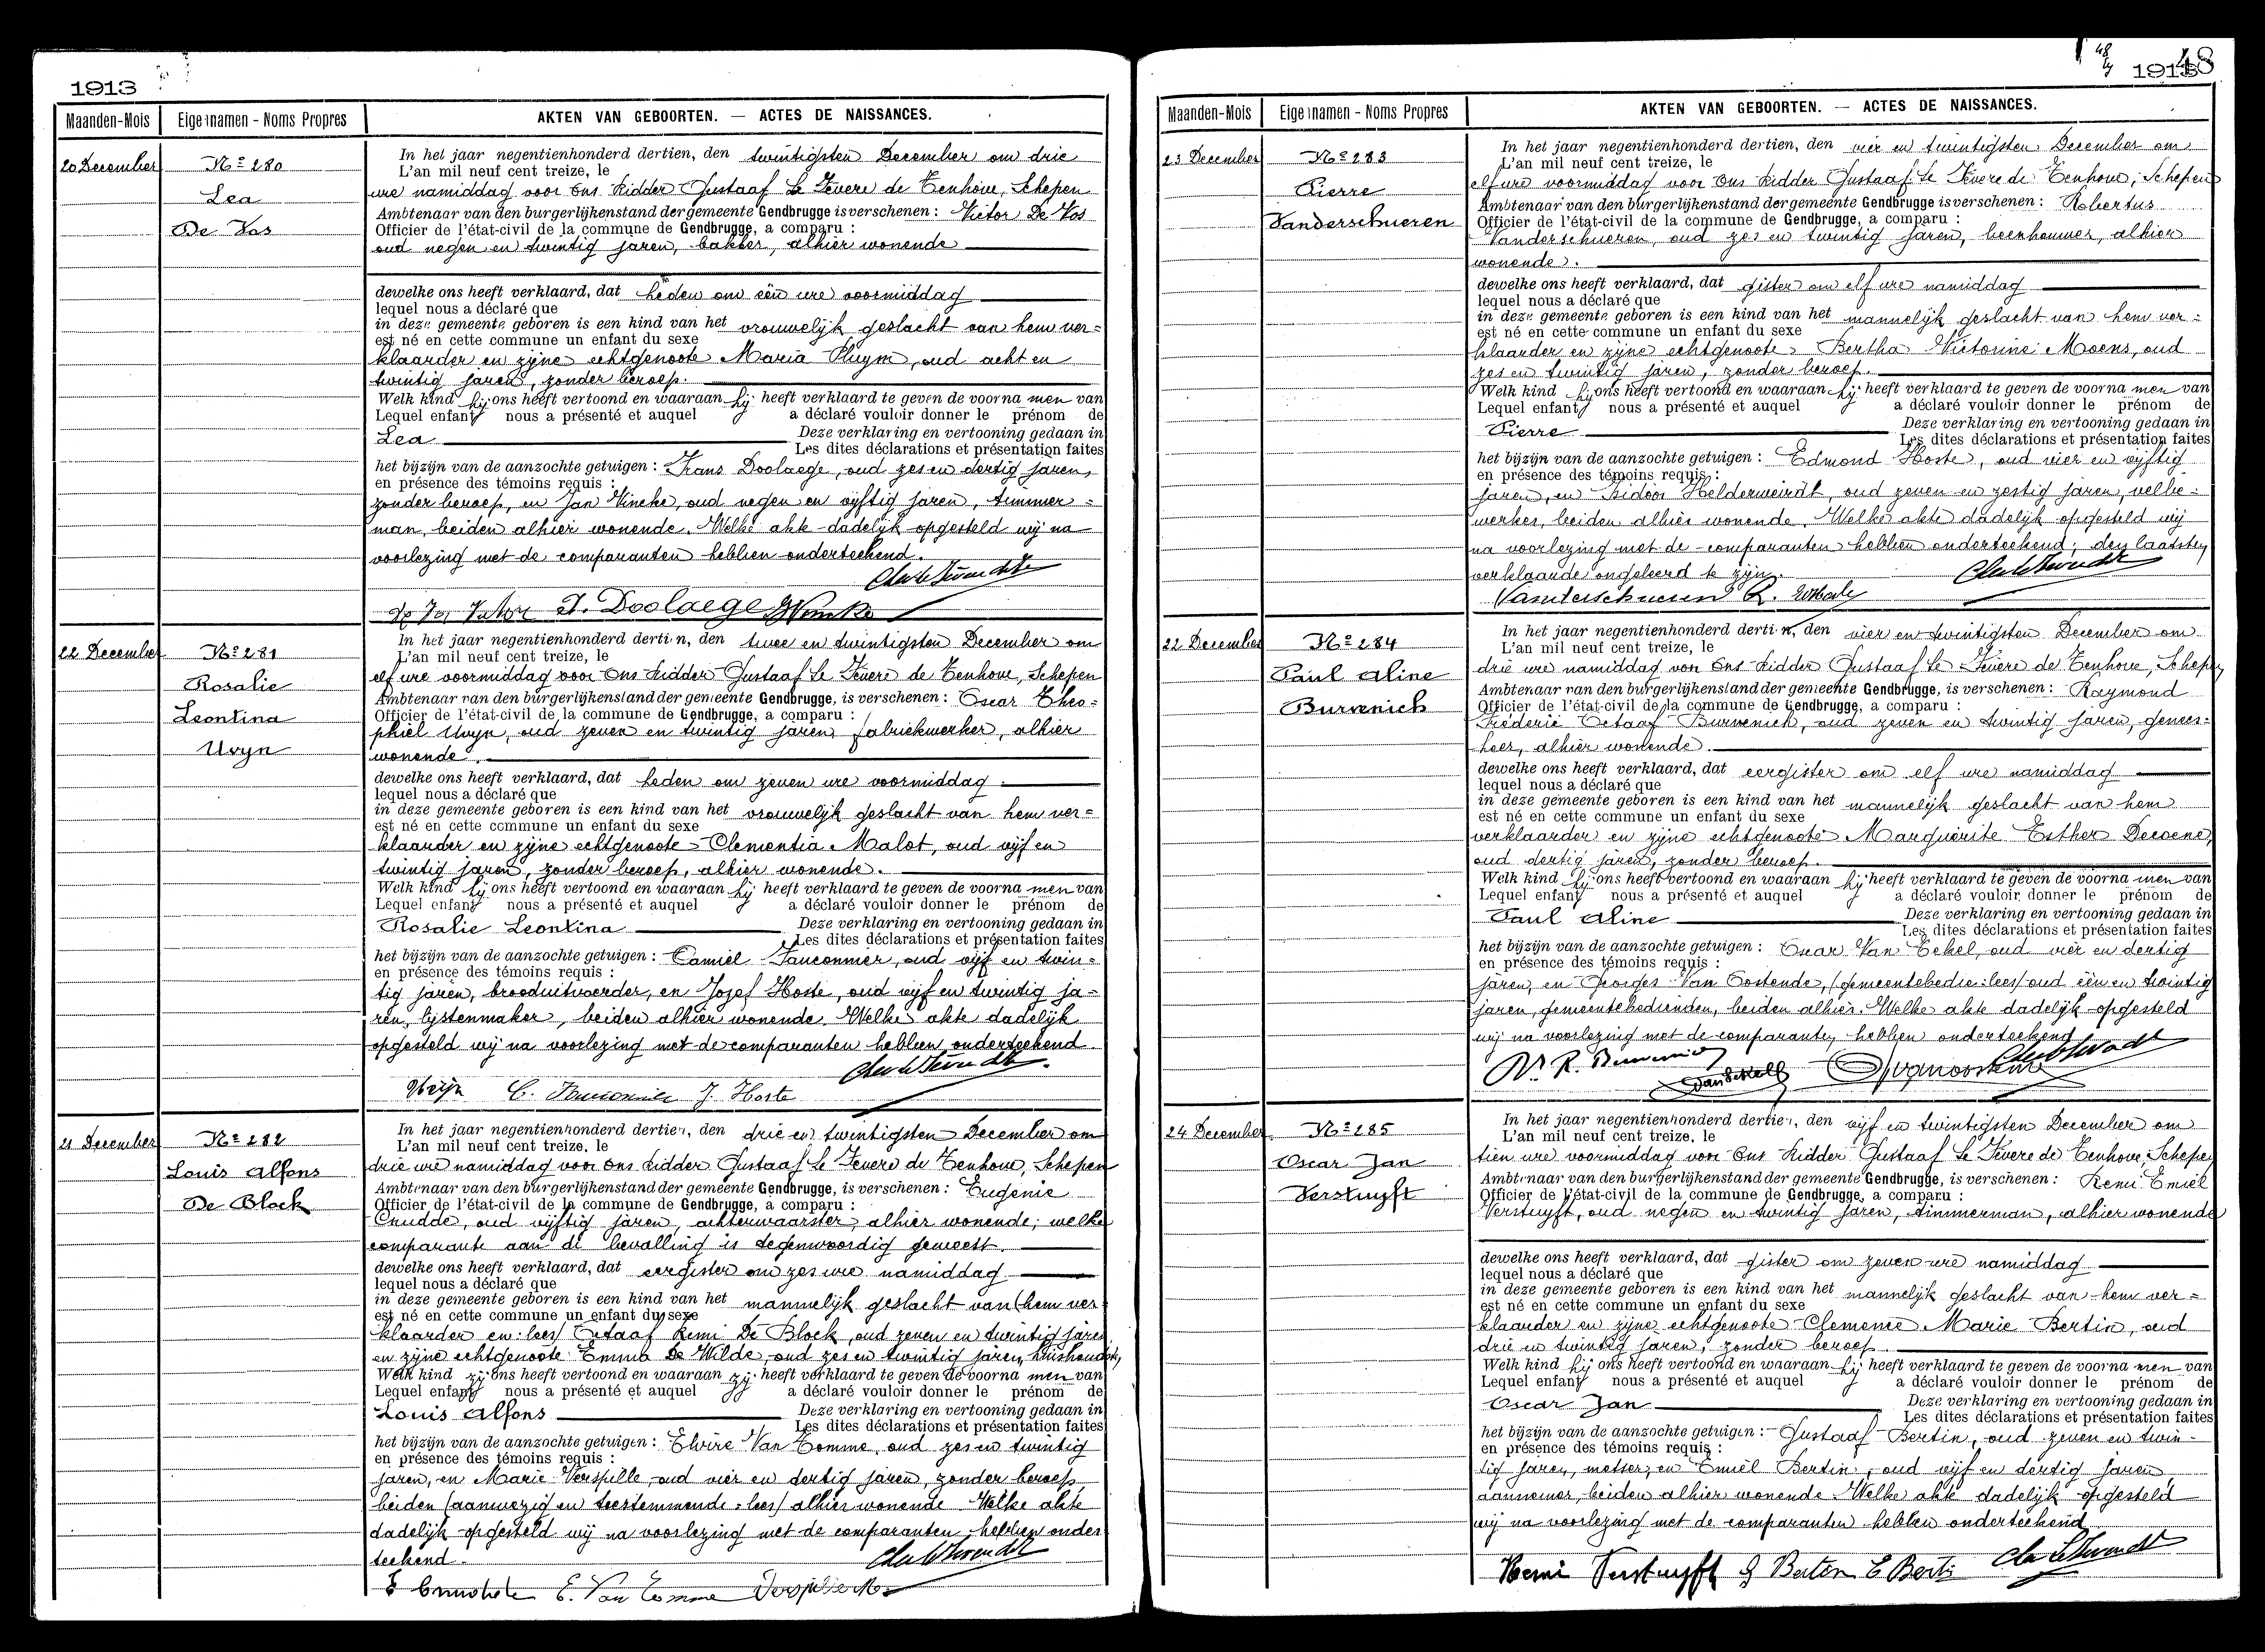 1913
Maanden-Mois
Eigennamen - Noms Propres
AKTEN VAN GEBOORTEN. — ACTES DE NAISSANCES.
20 December
Nº 280
Lea
De Vos
In het jaar negentienhonderd dertien, den twintigsten December om drie
L'an mil neuf cent treize, le
ure namiddag voor Ons Ridder Gustaaf Le Fevere de Tenhove, Schepen
Ambtenaar van den burgerlijkenstand der gemeente Gendbrugge is verschenen : Victor De Vos
Officier de l'état-civil de la commune de Gendbrugge, a comparu :
oud negen en twintig jaren, bakker, alhier wonende
dewelke ons heeft verklaard, dat heden om één ure voormiddag
lequel nous a déclaré que
in deze gemeente geboren is een kind van het vrouwelijk geslacht van hem ver=
est né en cette commune un enfant du sexe
klaarder en zijne echtgenoote Maria Pluym, oud acht en
twintig jaren, zonder beroep.
Welk kind hij ons heeft vertoond en waaraan hij heeft verklaard te geven de voorna men van
Lequel enfant nous a présenté et auquel a déclaré vouloir donner le prénom de
Lea Deze verklaring en vertooning gedaan in
Les dites déclarations et présentation faites
het bijzijn van de aanzochte getuigen : Frans Doolaege, oud zes en dertig jaren,
en présence des témoins requis :
zonder beroep, en Jan Vincke, oud negen en vijftig jaren, timmer=
man, beiden alhier wonende. Welke akte dadelijk opgesteld wij na
voorlezing met de comparanten hebben onderteekend.
De Vos Victor F. Doolaege Vincke
22 December
Nº 281
Rosalie
Leontina
Uvyn
In het jaar negentienhonderd dertien, den twee en twintigsten December om
L'an mil neuf cent treize, le
elf ure voormiddag voor Ons Ridder Gustaaf Le Fevere de Tenhove, Schepen
Ambtenaar van den burgerlijkenstand der gemeente Gendbrugge, is verschenen : Oscar Theo=
Officier de l'état-civil de la commune de Gendbrugge, a comparu :
phiel Uvyn, oud zeven en twintig jaren, fabriekwerker, alhier
wonende.
dewelke ons heeft verklaard, dat heden om zeven ure voormiddag
lequel nous a déclaré que
in deze gemeente geboren is een kind van het vrouwelijk geslacht van hem ver=
est né en cette commune un enfant du sexe
klaarder en zijne echtgenoote Clementia Malot, oud vijf en
twintig jaren, zonder beroep, alhier wonende.
Welk kind hij ons heeft vertoond en waaraan hij heeft verklaard te geven de voorna men van
Lequel enfant nous a présenté et auquel a déclaré vouloir donner le prénom de
Rosalie Leontina Deze verklaring en vertooning gedaan in
Les dites déclarations et présentation faites
het bijzijn van de aanzochte getuigen : Camiel Fauconnier, oud vijf en twin=
en présence des témoins requis :
tig jaren, brooduitvoerder, en Jozef Hoste, oud vijf en twintig ja=
ren, lijstenmaker, beiden alhier wonende. Welke akte dadelijk
opgesteld wij na voorlezing met de comparanten hebben onderteekend.
Uvijn C. Fauconnier J. Hoste
21 December
Nº 282
Louis Alfons
De Block
In het jaar negentienhonderd dertien, den drie en twintigsten December om
L'an mil neuf cent treize, le
drie ure namiddag voor Ons Ridder Gustaaf Le Fevere de Tenhove, Schepen
Ambtenaar van den burgerlijkenstand der gemeente Gendbrugge, is verschenen : Eugenie
Officier de l'état-civil de la commune de Gendbrugge, a comparu :
Cnudde, oud vijftig jaren, achterwaarster, alhier wonende; welke
comparante aan de bevalling is tegenwoordig geweest.
dewelke ons heeft verklaard, dat eergister om zes ure namiddag
lequel nous a déclaré que
in deze gemeente geboren is een kind van het mannelijk geslacht van (hem ver
est né en cette commune un enfant du sexe
klaarder en: lees) Octaaf Remi De Block, oud zeven en twintig jaren
en zijne echtgenoote Emma De Wilde, oud zes en twintig jaren, huishoudster,
Welk kind zij ons heeft vertoond en waaraan zij heeft verklaard te geven de voorna men van
Lequel enfant nous a présenté et auquel a déclaré vouloir donner le prénom de
Louis Alfons Deze verklaring en vertooning gedaan in
Les dites déclarations et présentation faites
het bijzijn van de aanzochte getuigen : Elvire Van Tomme, oud zes en twintig
en présence des témoins requis :
jaren, en Marie Verspille, oud vier en dertig jaren, zonder beroep,
beiden (aanwezig en toestemmende: lees) alhier wonende. Welke akte
dadelijk opgesteld wij na voorlezing met de comparanten hebben onder
teekend.
E Cnudde E. Van Tomme Verspille M
48
1913
Maanden-Mois
Eigennamen - Noms Propres
AKTEN VAN GEBOORTEN. — ACTES DE NAISSANCES.
23 December
Nº 283
Pierre
Vanderschueren
In het jaar negentienhonderd dertien, den vier en twintigsten December om
L'an mil neuf cent treize, le
elf ure voormiddag voor Ons Ridder Gustaaf Le Fevere de Tenhove, Schepen
Ambtenaar van den burgerlijkenstand der gemeente Gendbrugge is verschenen : Robertus
Officier de l'état-civil de la commune de Gendbrugge, a comparu :
Vanderschueren, oud zes en twintig jaren, beenhouwer, alhier
wonende.
dewelke ons heeft verklaard, dat gister om elf ure namiddag
lequel nous a déclaré que
in deze gemeente geboren is een kind van het mannelijk geslacht van hem ver=
est né en cette commune un enfant du sexe
klaarder en zijne echtgenoote Bertha Victorine Moens, oud
zes en twintig jaren, zonder beroep.
Welk kind hij ons heeft vertoond en waaraan hij heeft verklaard te geven de voorna men van
Lequel enfant nous a présenté et auquel a déclaré vouloir donner le prénom de
Pierre Deze verklaring en vertooning gedaan in
Les dites déclarations et présentation faites
het bijzijn van de aanzochte getuigen : Edmond Hoste, oud vier en vijftig
en présence des témoins requis :
jaren, en Isidoor Helderweirdt, oud zeven en zestig jaren, velbe=
werker, beiden alhier wonende. Welke akte dadelijk opgesteld wij
na voorlezing met de comparanten hebben onderteekend; den laatsten
verklaarde ongeleerd te zijn.
Vanderschueren R.
22 December
Nº 284
Paul Aline
Burvenich
In het jaar negentienhonderd dertien, den vier en twintigsten December om
L'an mil neuf cent treize, le
drie ure namiddag voor Ons Ridder Gustaaf Le Fevere de Tenhove, Schepen
Ambtenaar van den burgerlijkenstand der gemeente Gendbrugge, is verschenen : Raymond
Officier de l'état-civil de la commune de Gendbrugge, a comparu :
Fréderic Octaaf Burvenich, oud zeven en twintig jaren, genees=
heer, alhier wonende.
dewelke ons heeft verklaard, dat eergister om elf ure namiddag
lequel nous a déclaré que
in deze gemeente geboren is een kind van het mannelijk geslacht van hem
est né en cette commune un enfant du sexe
verklaarder en zijne echtgenoote Marguerite Esther Decoene,
oud dertig jaren, zonder beroep.
Welk kind hij ons heeft vertoond en waaraan hij heeft verklaard te geven de voorna men van
Lequel enfant nous a présenté et auquel a déclaré vouloir donner le prénom de
Paul Aline Deze verklaring en vertooning gedaan in
Les dites déclarations et présentation faites
het bijzijn van de aanzochte getuigen : Oscar Van Eekel, oud vier en dertig
en présence des témoins requis :
jaren, en Georges Van Oostende, (gemeentebedie: lees) oud één en twintig
jaren, gemeentebedienden, beiden alhier. Welke akte dadelijk opgesteld
wij na voorlezing met de comparanten hebben onderteekend
Dr R. Burvenich
24 December
Nº 285
Oscar Jan
Verstuyft
In het jaar negentienhonderd dertien, den vijf en twintigsten December om
L'an mil neuf cent treize, le
tien ure voormiddag voor Ons Ridder Gustaaf Le Fevere de Tenhove, Schepen
Ambtenaar van den burgerlijkenstand der gemeente Gendbrugge, is verschenen : Remi Emiel
Officier de l'état-civil de la commune de Gendbrugge, a comparu :
Verstuyft, oud negen en twintig jaren, timmerman, alhier wonende
dewelke ons heeft verklaard, dat gister om zeven ure namiddag
lequel nous a déclaré que
in deze gemeente geboren is een kind van het mannelijk geslacht van hem ver=
est né en cette commune un enfant du sexe
klaarder en zijne echtgenoote Clemence Marie Bertin, oud
drie en twintig jaren, zonder beroep
Welk kind hij ons heeft vertoond en waaraan hij heeft verklaard te geven de voorna men van
Lequel enfant nous a présenté et auquel a déclaré vouloir donner le prénom de
Oscar Jan Deze verklaring en vertooning gedaan in
Les dites déclarations et présentation faites
het bijzijn van de aanzochte getuigen : Gustaaf Bertin, oud zeven en twin=
en présence des témoins requis :
tig jaren, metser, en Emiel Bertin, oud vijf en dertig jaren,
aannemer, beiden alhier wonende. Welke akte dadelijk opgesteld
wij na voorlezing met de comparanten hebben onderteekend
Remi Verstuyft G Berten E Berti